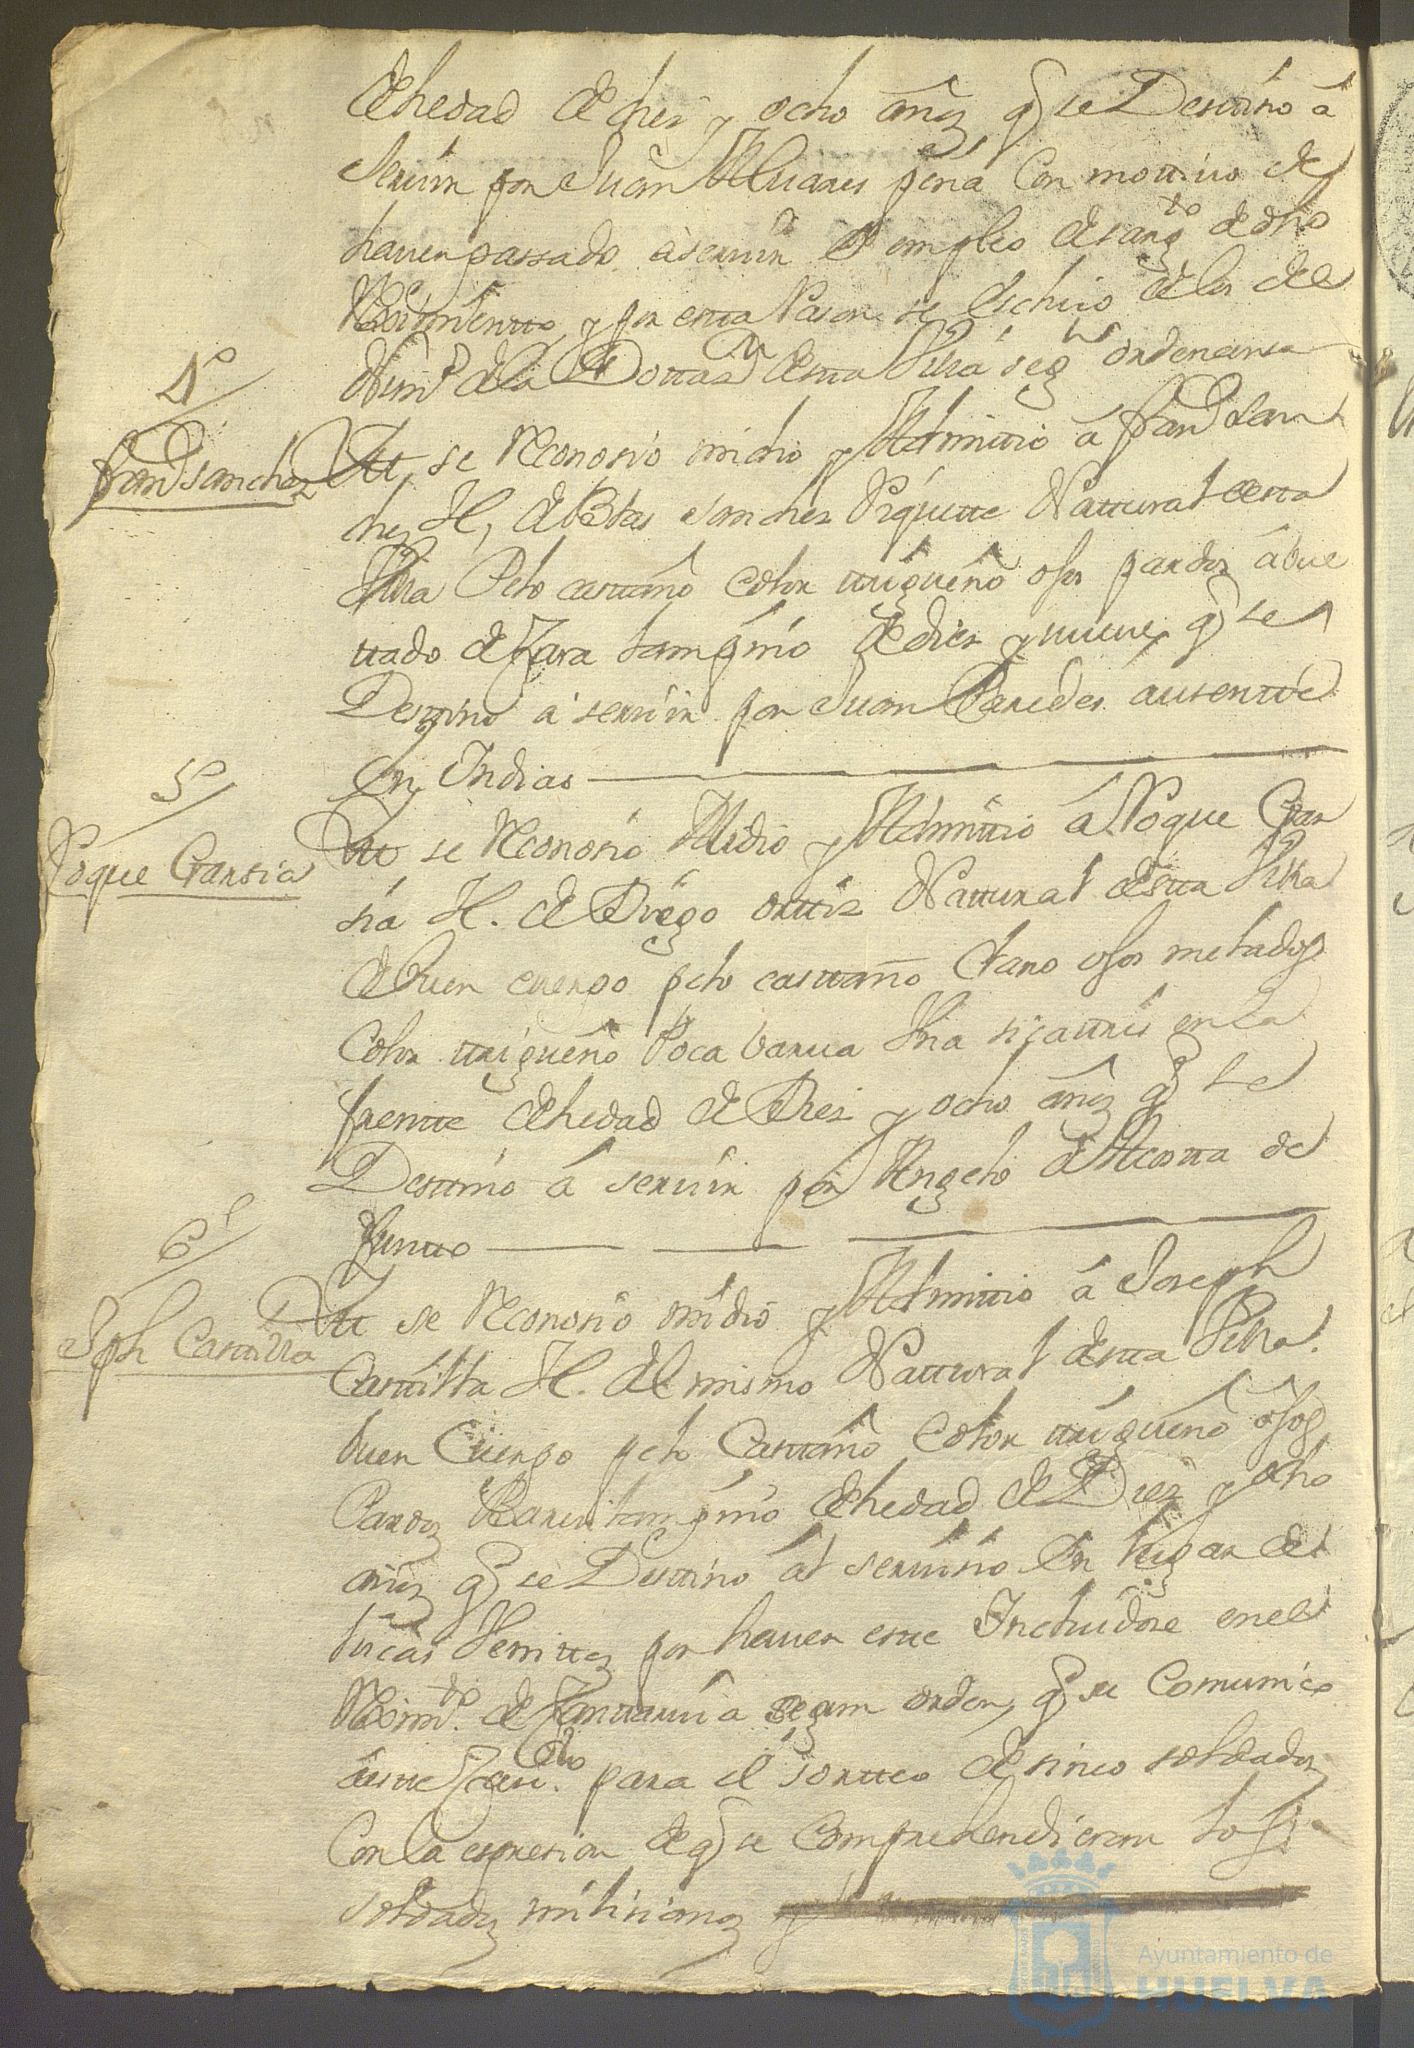 de hedad de dies y ocho añoz q se Destinó á
Seruir por Juan Aluares peña Con mottiuo de
hauer passado a seruir el empleo de sargto de dho
Reximientto y por esta Rason se escluió de los del
Numo de la Dottaon desta Villa seg ordenansa
4º
franco sanchez
Itt se Reconosio midio y Admittio á franco San
chez H, de Blas Sanchez Piquette Nattural desta
Villa Pelo casttaño color ttrigueño ojos pardoz abue
ttado de Zara lampiño de dies y nueue q se
Destino a seruir por Juan Paredes ausentte
en Indias
5º
Roque Garsia
Itt se Reconosio Midio y Admittio á Roque Gar
sia H. de Diego orttiz Nattural destta Villa
de buen cuerpo pelo casttaño Claro ojos meladoz
Color ttrigueño Poca barua Vna sicattris en la
frentte de hedad de Dies y ocho añoz q se
Destinó á seruir por Angelo de Acostta de
funtto
6º
Jph Casttilla
Itt se Reconosio midio y Admittio á Joseph
Casttilla H. del mismo Nattural destta Villa.
buen Cuerpo pelo Casttaño Color ttrigueño ojos
Pardoz Barui lampiño de hedad de Diez y ocho
añoz q se Desttino al seruisio En lugar de
lucas por hauer este Incluidose en el
Reximto de Canttauria segun orden, q se Comunico
a este para el sortteo de sinco soldadoz
Con la espresion de q se Comprehendieran los
soldadoz milisianoz y
Ayuntamiento de
HUELVA